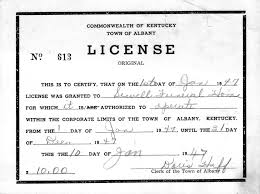 COMMONWEALTH OF KENTUCKY
TOWN OF ALBANY
No 613
LICENSE
ORIGINAL
THIS IS TO CERTIFY, THAT ON THE 10 DAY OF Jan 1947
LICENSE WAS GRANTED TO Sewell Funeral Home
FOR WHICH it IS AUTHORIZED TO operate
WITHIN THE CORPORATE LIMITS OF THE TOWN OF ALBANY, KENTUCKY.
FROM THE 1 DAY OF Jan 1947 UNTIL THE 31
DAY OF Decm 1947
THIS THE 10 DAY OF Jan 1947
$ 10.00
Clerk of the Town of Albany